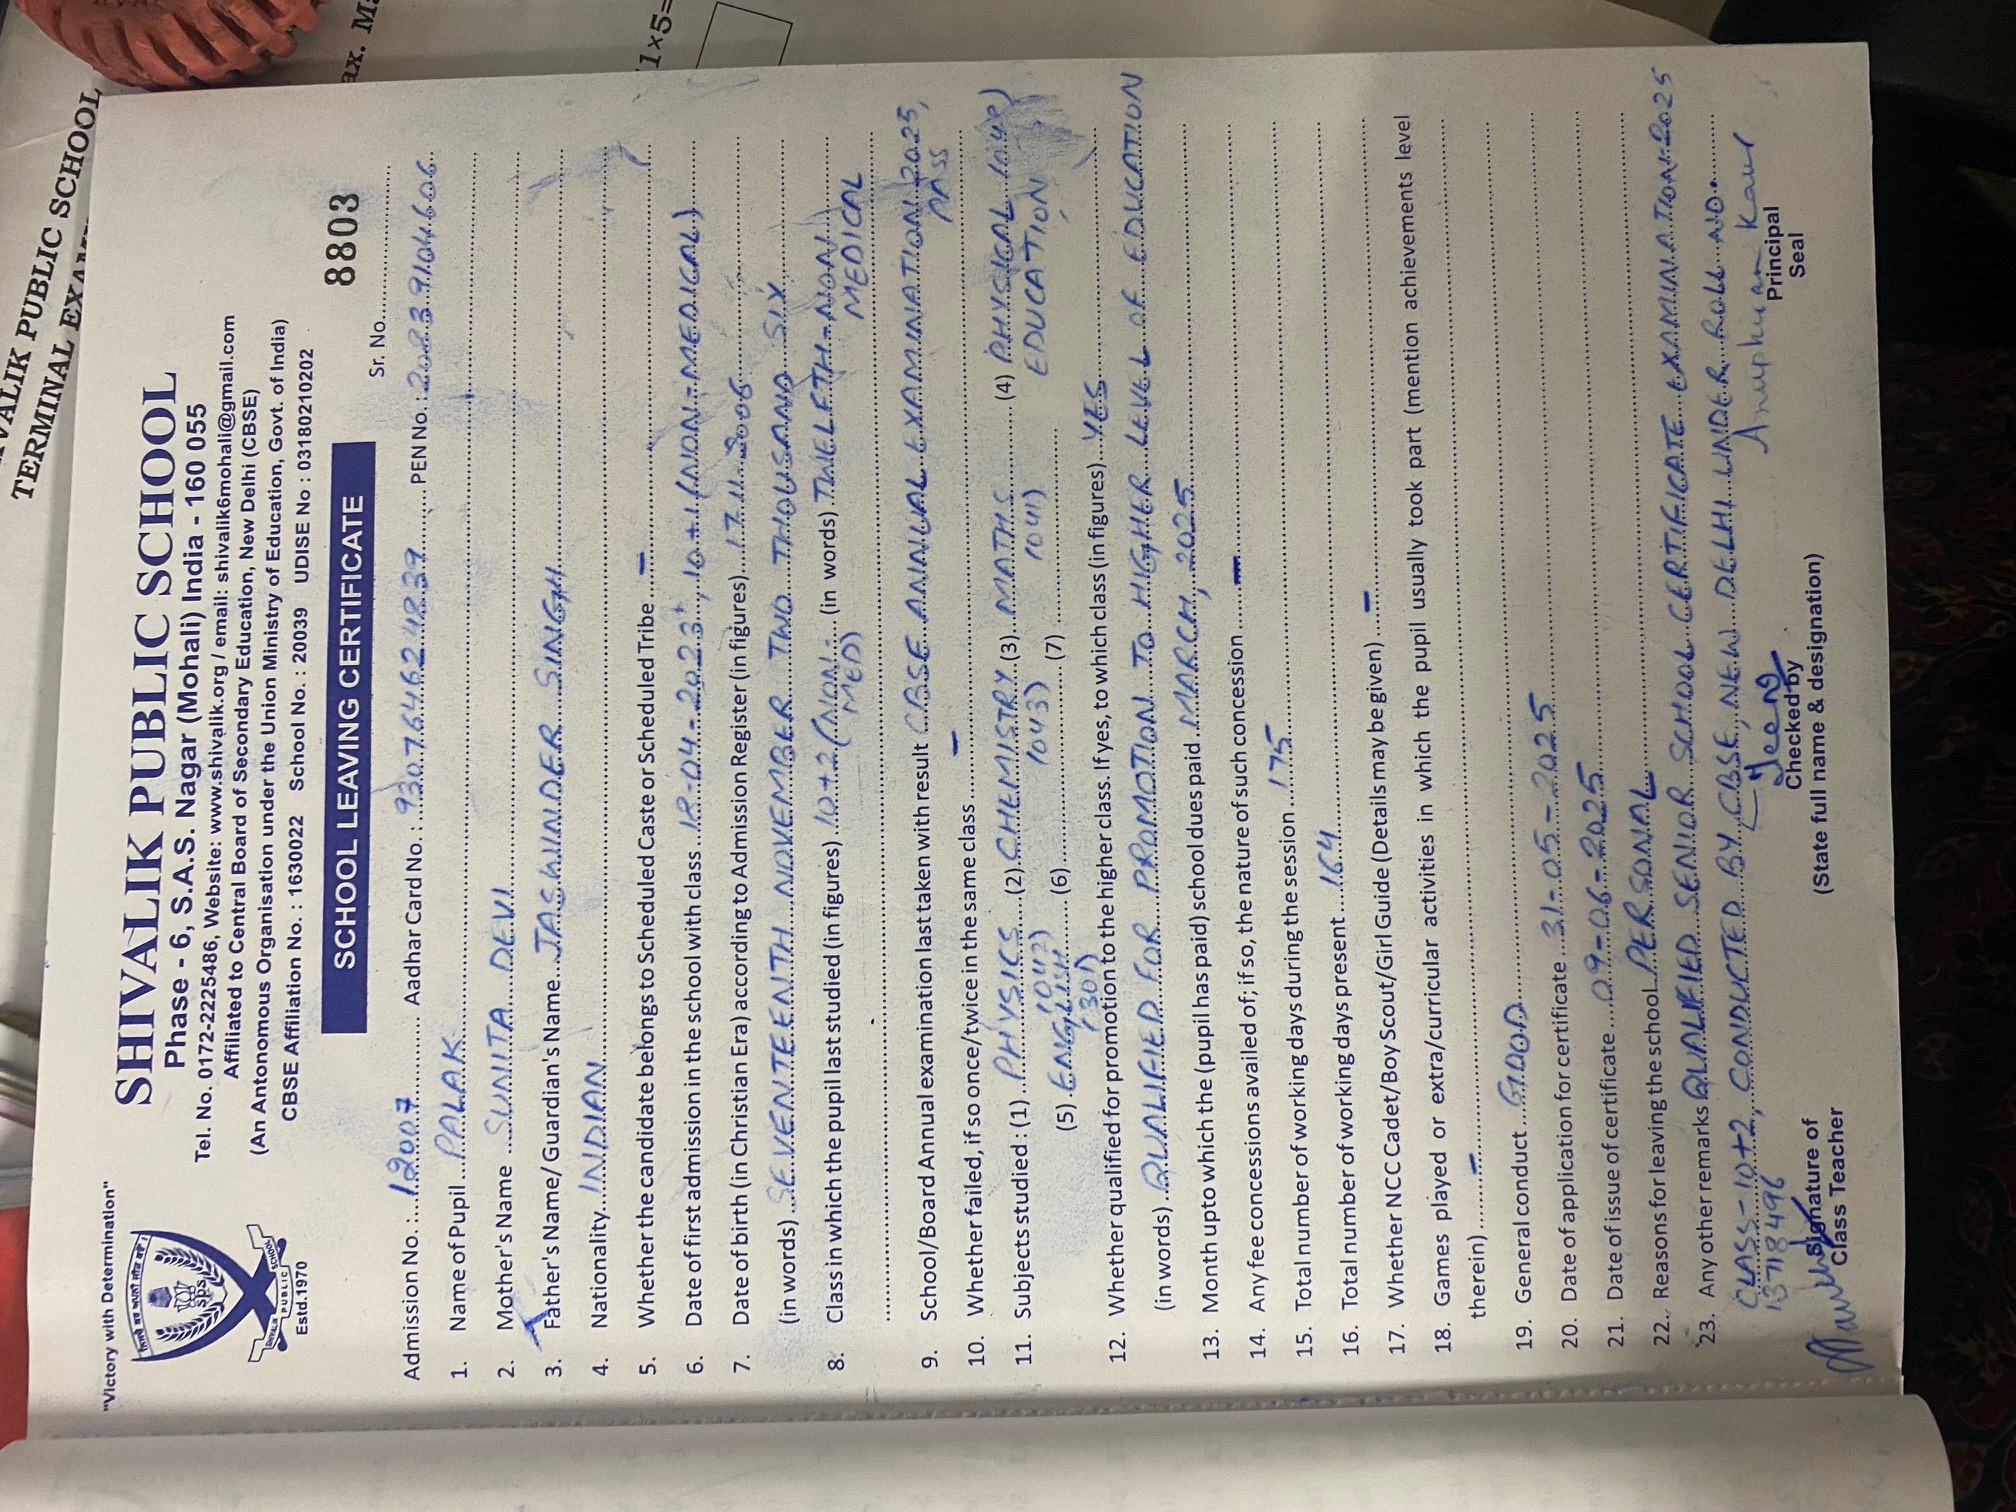 VALIK PUBLIC SCHOOL
TERMINAL EXAM
ax. Ma
1x5=
"Victory with Determination"
SHIVALIK PUBLIC SCHOOL
Phase - 6, S.A.S. Nagar (Mohali) India - 160 055
Tel. No. 0172-2225486, Website: www.shivalik.org / email: shivalik6mohali@gmail.com
Affiliated to Central Board of Secondary Education, New Delhi (CBSE)
(An Autonomous Organisation under the Union Ministry of Education, Govt. of India)
CBSE Affiliation No. : 1630022 School No. : 20039 UDISE No : 03180210202
sps
SHIVALIK PUBLIC SCHOOL
Estd.1970
SCHOOL LEAVING CERTIFICATE
8803
Sr. No.
Admission No. : 12007 Aadhar Card No. : 930764624839 PEN No. : 20839104606
1. Name of Pupil PALAK
2. Mother's Name SUNITA DEVI
3. Father's Name/ Guardian's Name JASWINDER SINGH
4. Nationality INDIAN
5. Whether the candidate belongs to Scheduled Caste or Scheduled Tribe –
6. Date of first admission in the school with class 12-04-2023, 10+1 (NON-MEDICAL)
7. Date of birth (in Christian Era) according to Admission Register (in figures) 17.11.2006
(in words) SEVENTEENTH NOVEMBER TWO THOUSAND SIX
8. Class in which the pupil last studied (in figures) 10+2 (NON- (in words) TWELFTH-NON
MED) MEDICAL
9. School/Board Annual examination last taken with result CBSE ANNUAL EXAMINATION 2025,
PASS
10. Whether failed, if so once/twice in the same class –
11. Subjects studied : (1) PHYSICS (2) CHEMISTRY (3) MATHS (4) PHYSICAL (048)
(042) (043) (041) EDUCATION
(5) ENGLISH (6) (7)
(301)
12. Whether qualified for promotion to the higher class. If yes, to which class (in figures) YES
(in words) QUALIFIED FOR PROMOTION TO HIGHER LEVEL OF EDUCATION
13. Month upto which the (pupil has paid) school dues paid MARCH, 2025
14. Any fee concessions availed of; if so, the nature of such concession –
15. Total number of working days during the session 175
16. Total number of working days present 164
17. Whether NCC Cadet/Boy Scout/Girl Guide (Details may be given) –
18. Games played or extra/curricular activities in which the pupil usually took part (mention achievements level
therein) –
19. General conduct GOOD
20. Date of application for certificate 31-05-2025
21. Date of issue of certificate 09-06-2025
22. Reasons for leaving the school PERSONAL
23. Any other remarks QUALIFIED SENIOR SCHOOL CERTIFICATE EXAMINATION-2025
CLASS-10+2, CONDUCTED BY CBSE, NEW DELHI UNDER ROLL NO.
13718496
Anuphuan Kaur
Signature of
Class Teacher
Checked by
(State full name & designation)
Principal
Seal